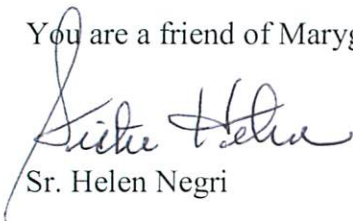 You are a friend of Maryg
Sister Helen
Sr. Helen Negri